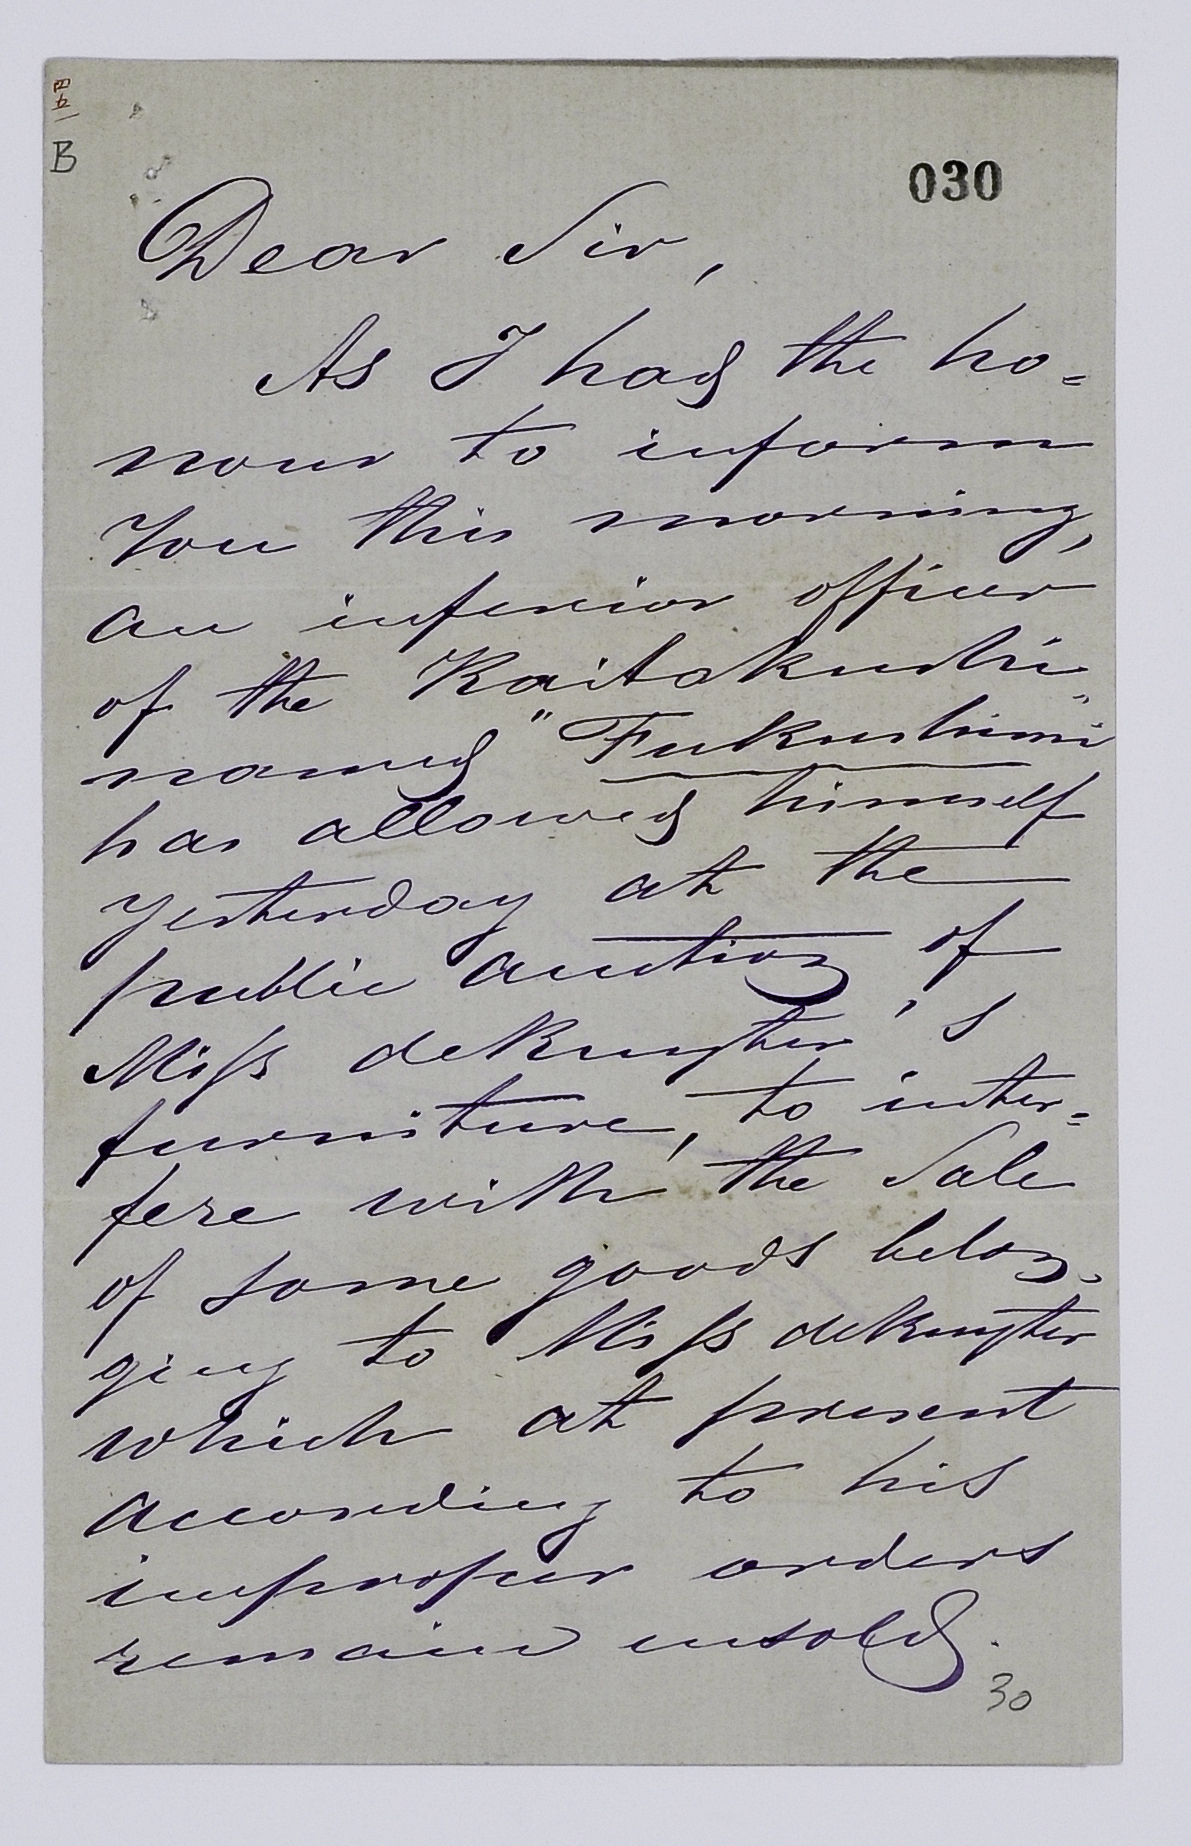 B
030
Dear Sir,
As I had the ho=
nour to inform
You this morning,
an inferior officer
of the Kaitakushi
named "Fukushimi"
has allowed himself
yesterday at the
public auction of
Miss deRuyter's
furniture, to inter=
fere with the Sale
of some goods belon=
ging to Miss deRuyter
which at present
according to his
improper orders
remain unsold.
30